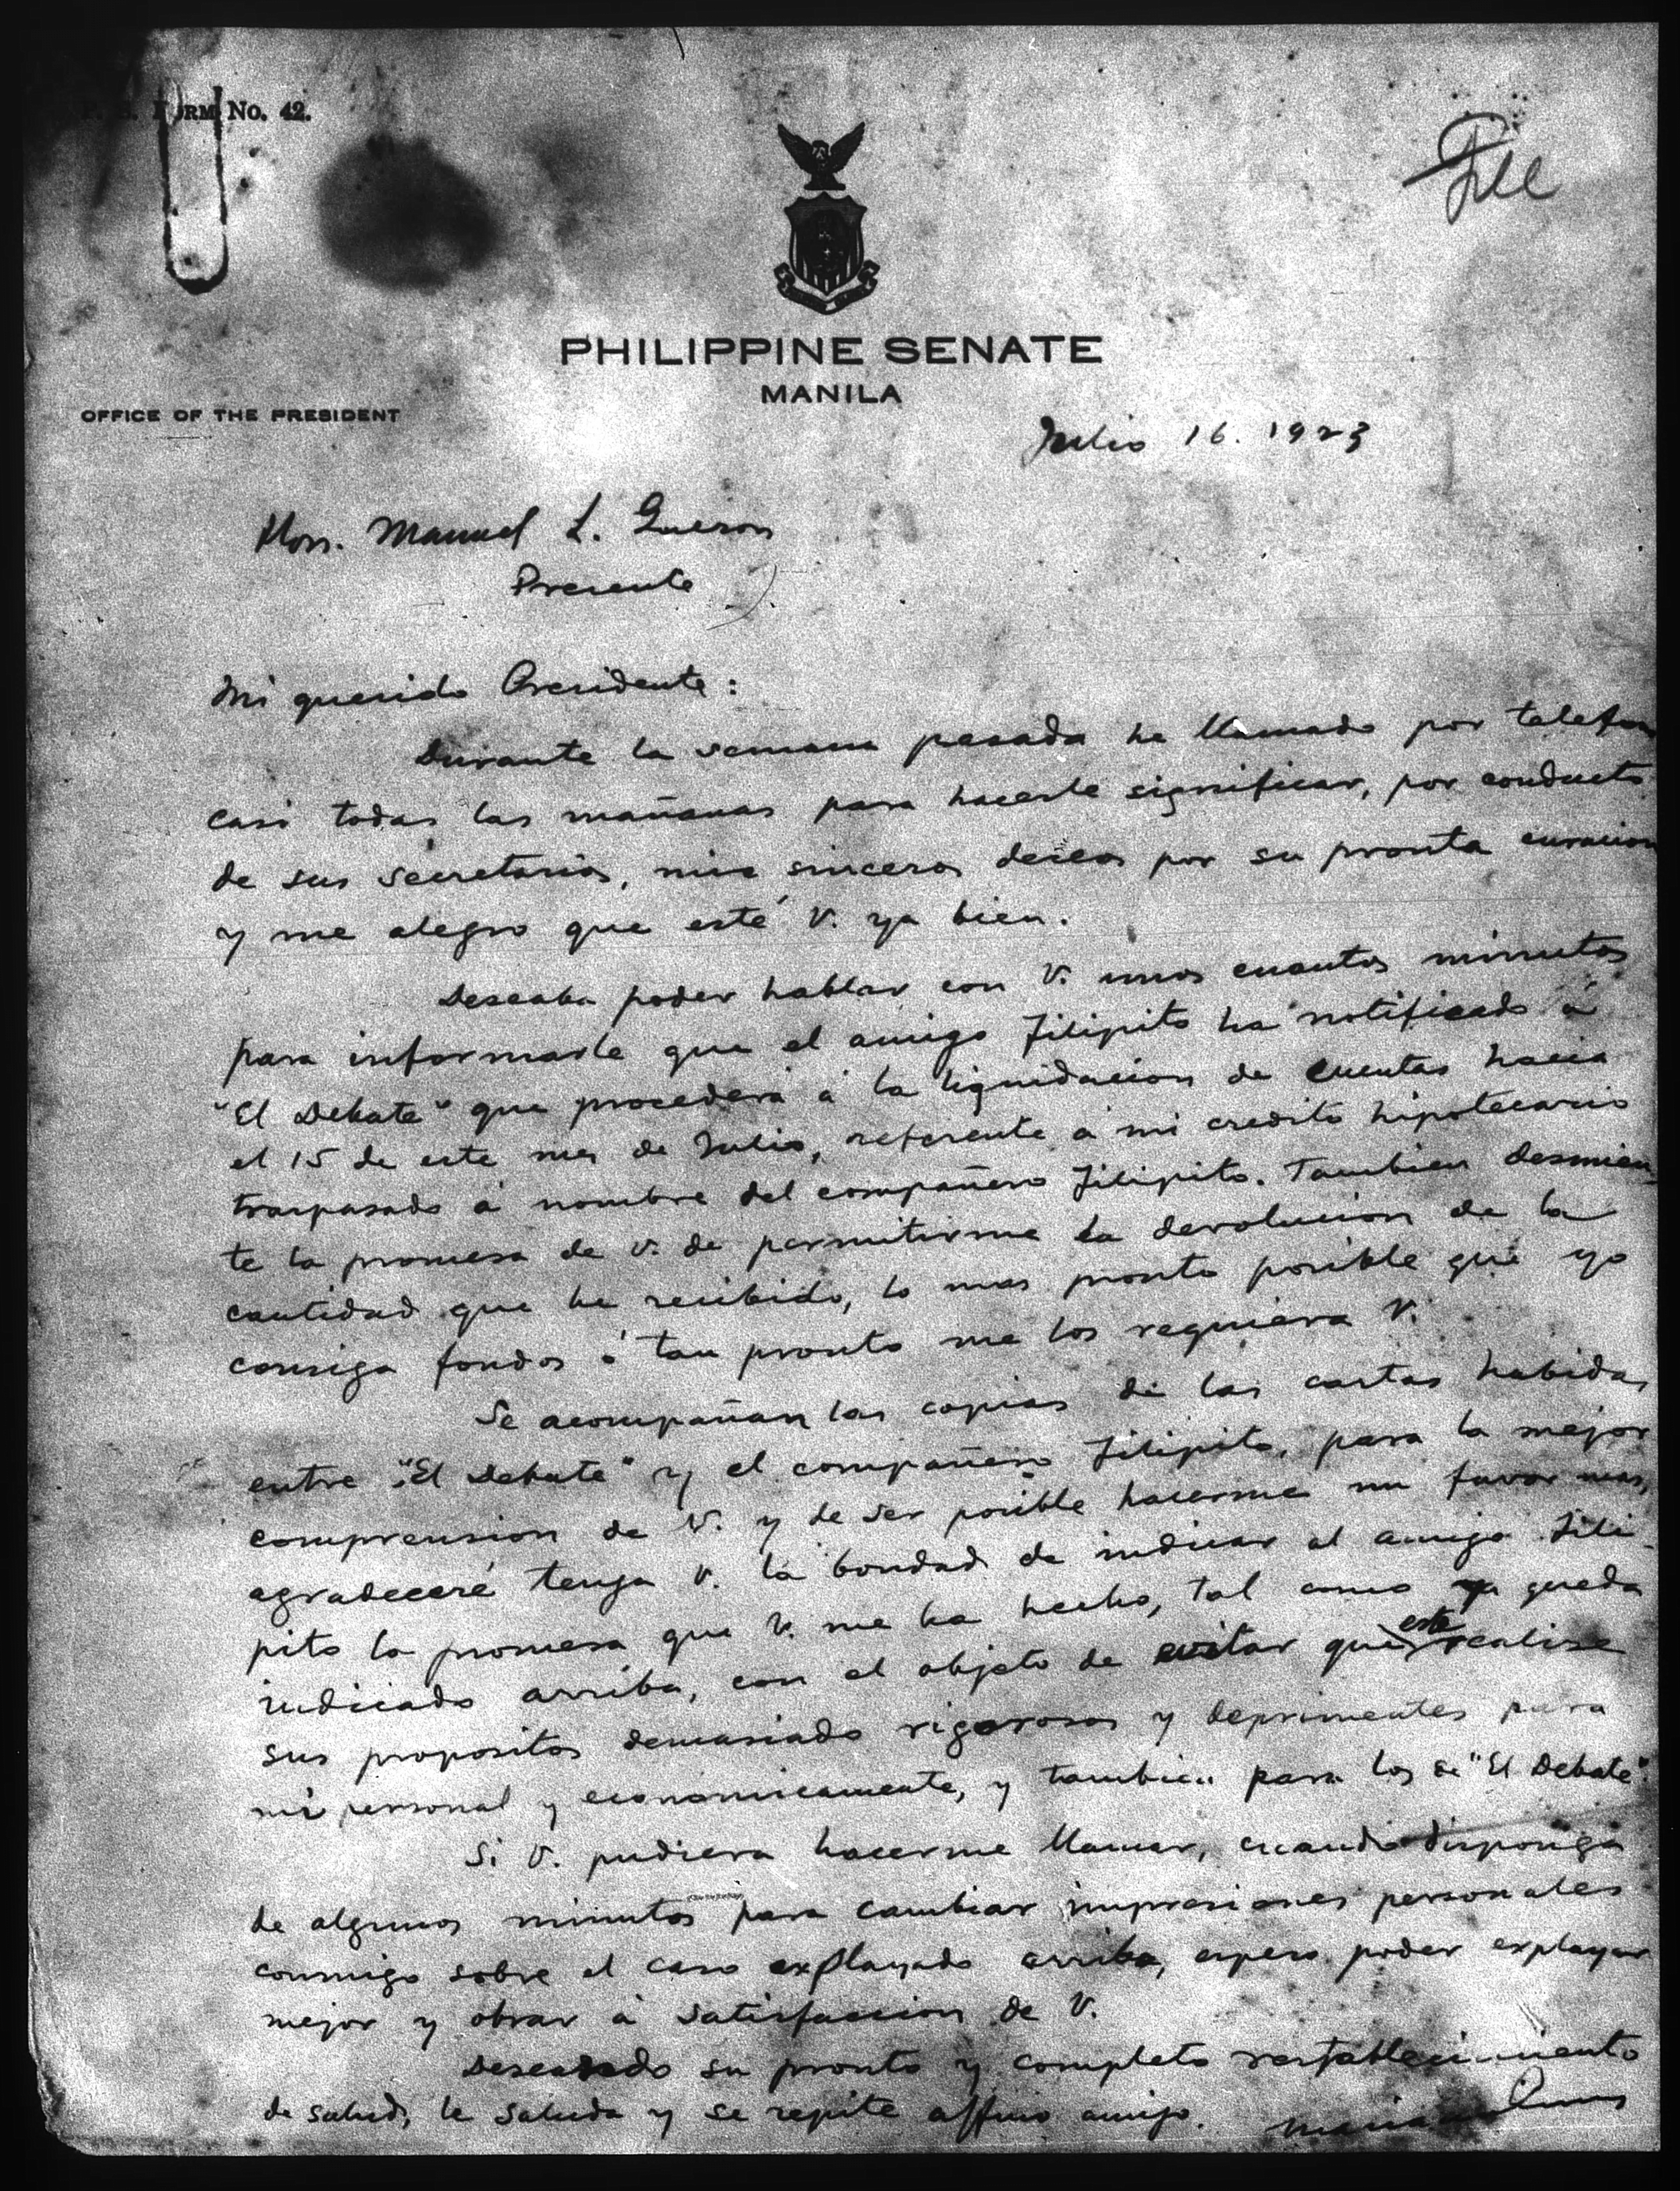 FORM No. 42.
File
PHILIPPINE SENATE
MANILA
OFFICE OF THE PRESIDENT
Julio 16. 1923
Hon. Manuel L. Quezon
Presente
Mi querido Presidente:
Durante la semana pasada he llamado por telefono
casi todas las mañanas para hacerle significar, por conducto
de sus secretarios, mis sinceros deseos por su pronta curacion
y me alegro que esté V. ya bien.
Deseaba poder hablar con V. unos cuantos minutos
para informarle que el amigo Filipito ha notificado á
"El Debate" que procederá á la liquidacion de cuentas hacia
el 15 de este mes de Julio, referente á mi credito hipotecario
traspasado á nombre del compañero Filipito. Tambien desmien-
te la promesa de V. de permitirme la devolucion de la
cantidad que he recibido, lo mas pronto posible que yo
consiga fondos ó tan pronto me los requiera V.
Se acompañan las copias de las cartas habidas
entre "El Debate" y el compañero Filipito, para la mejor
comprension de V. y de ser posible hacerme un favor mas,
agradeceré tenga V. la bondad de indicar al amigo Fili-
pito la promesa que V. me ha hecho, tal como ya queda
indicado arriba, con el objeto de evitar que este realise
sus propositos demasiado rigorosos y deprimentes para
mi personal y economicamente, y tambien para los de "El Debate".
Si V. pudiera hacerme llamar, cuando disponga
de algunos minutos para cambiar impresiones personales
conmigo sobre el caso explayado arriba, espero poder explayar
mejor y obrar á satisfaccion de V.
Deseando su pronto y completo restablecimiento
de salud, le saluda y se repite affmo amigo.